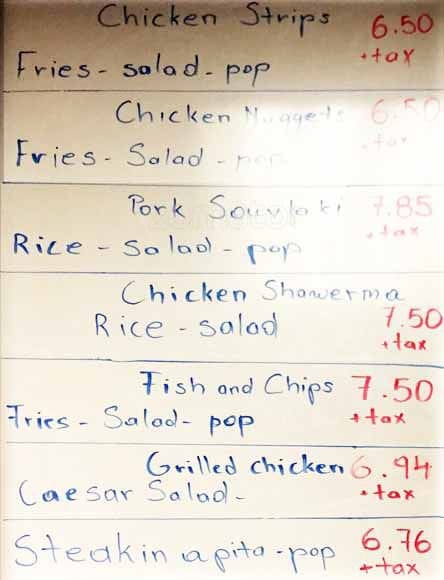 Chicken Strips 6.50
Fries - salad - pop +tax
Chicken Nuggets 6.50
Fries - Salad - pop +tax
Pork Souvlaki 7.85
Rice - Salad - pop +tax
Chicken Showerma
Rice - salad 7.50
+tax
Fish and Chips 7.50
Fries - Salad - pop +tax
Grilled chicken 6.94
Caesar Salad - +tax
Steak in a pita - pop 6.76
+tax